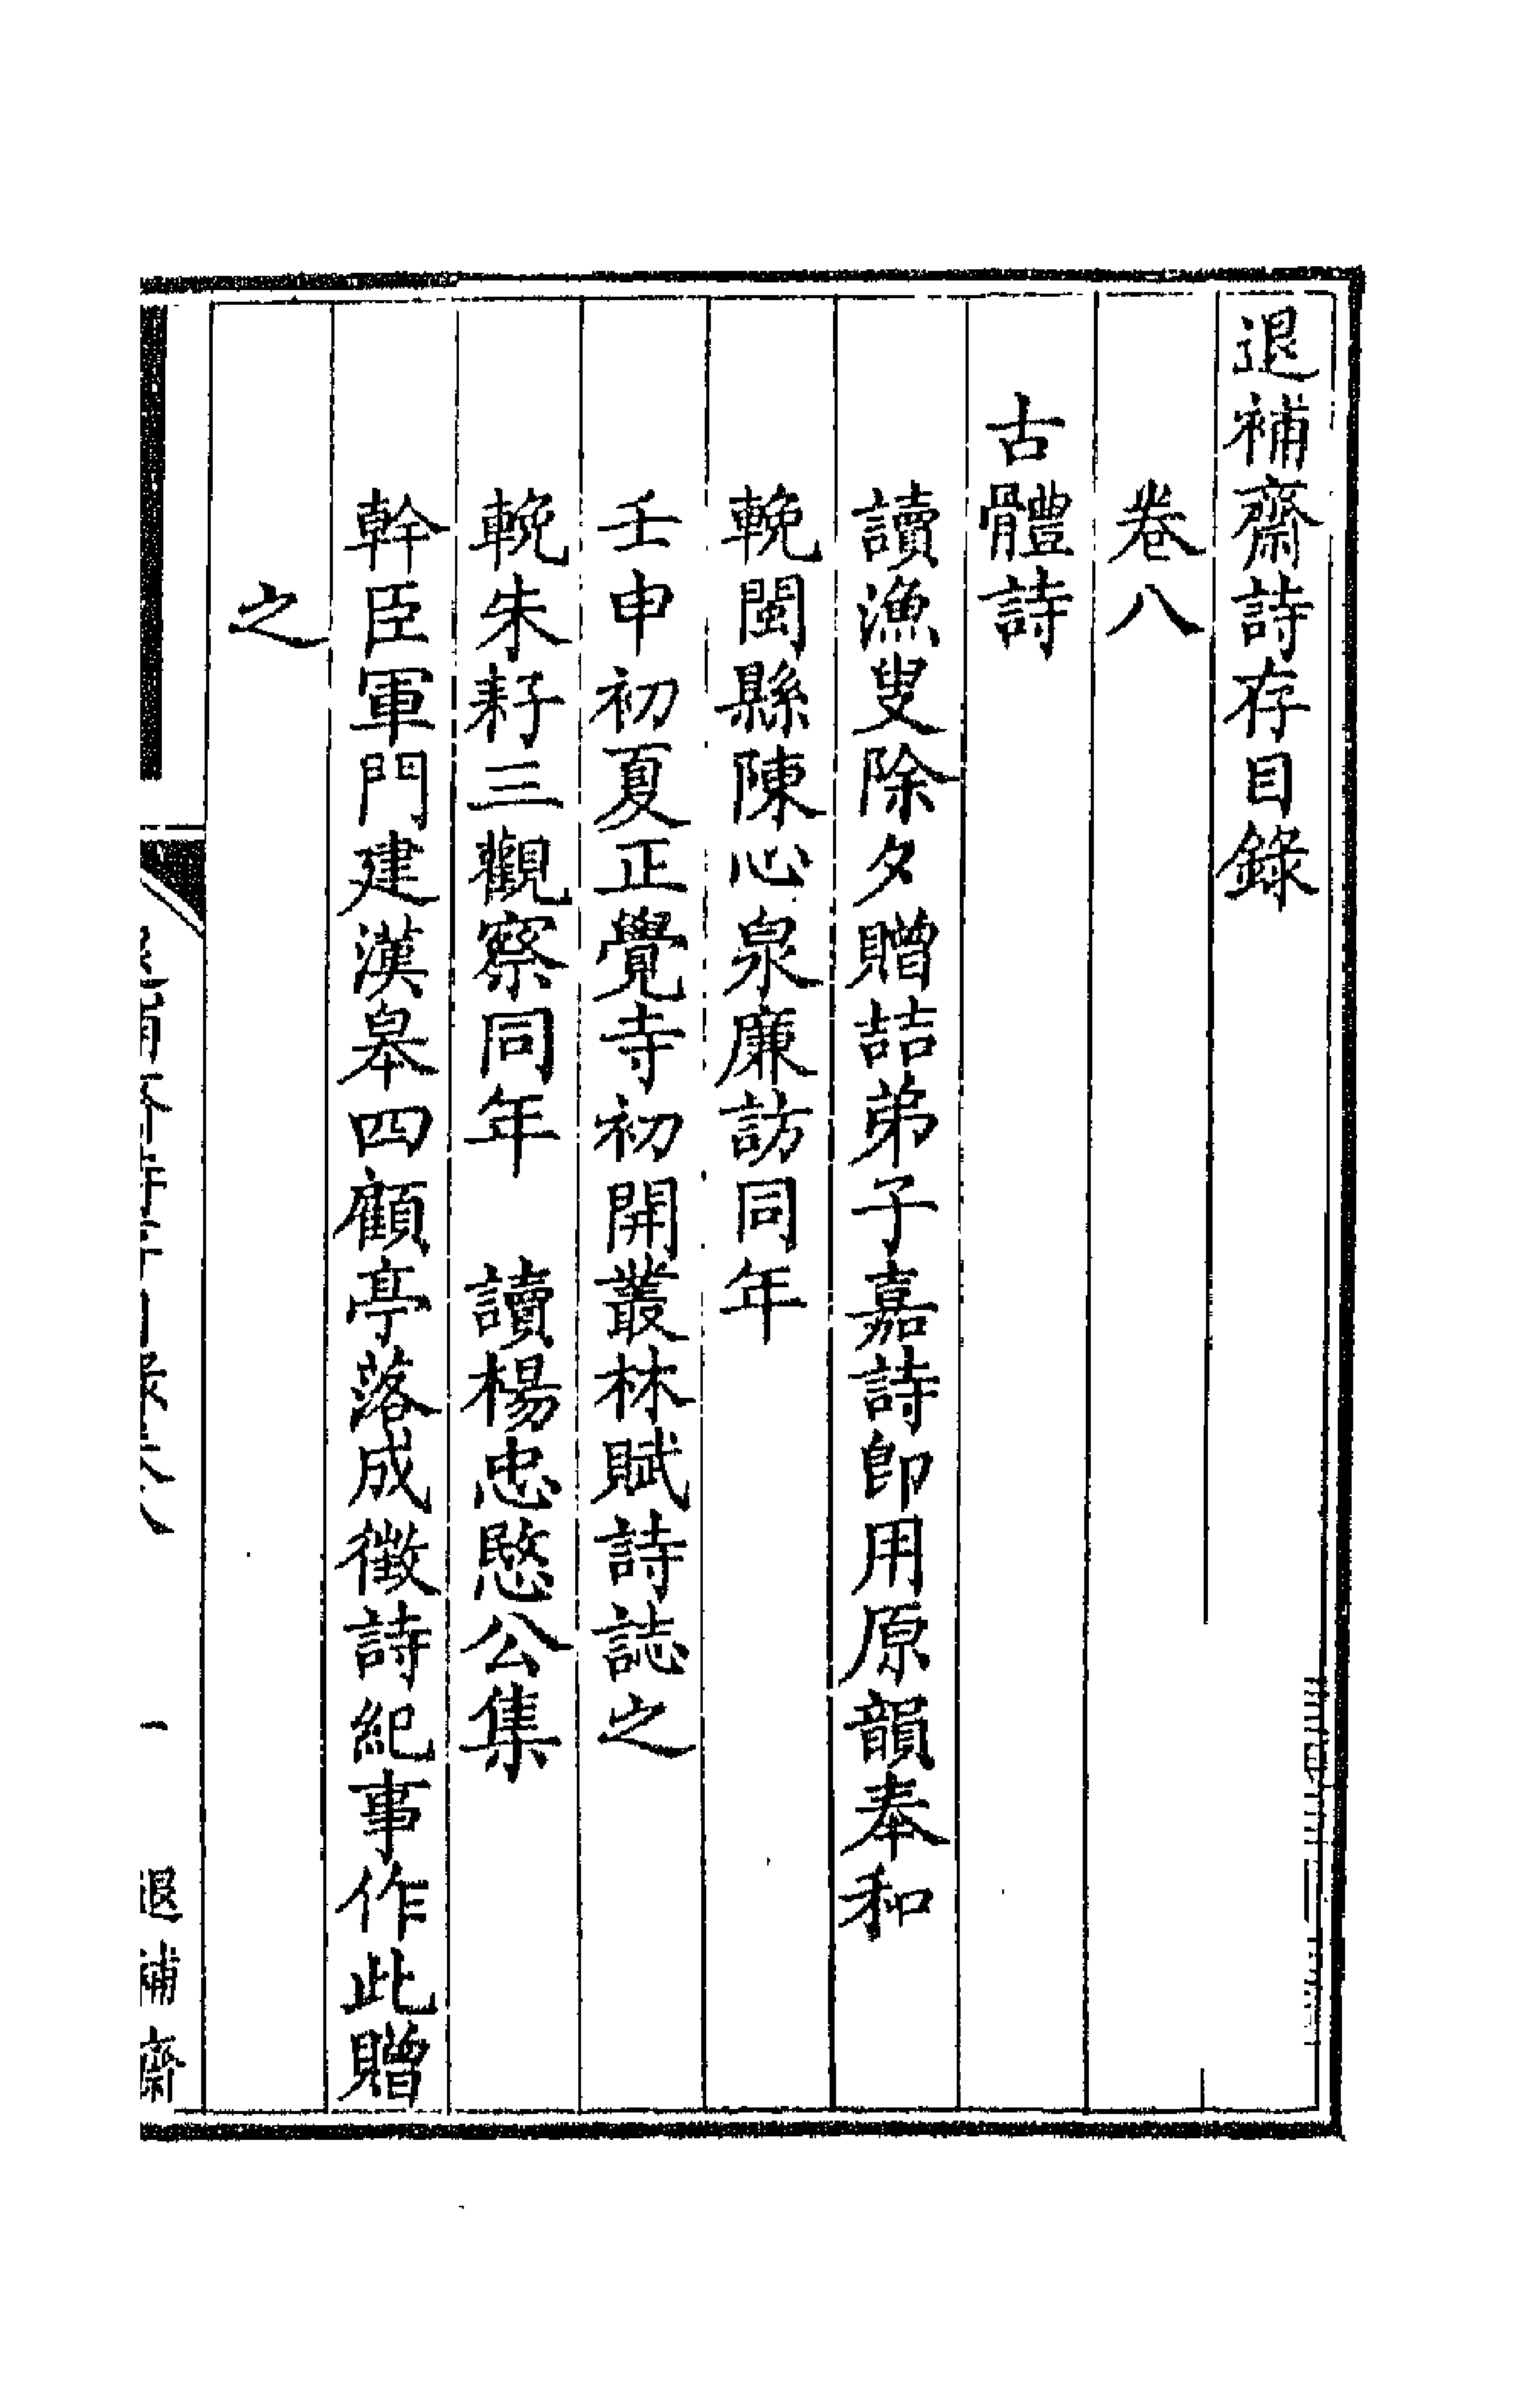 退補齋詩存目錄
卷八
古體詩
讀漁叟除夕贈喆弟子嘉詩即用原韻奉和
輓閩縣陳心泉廉訪同年
壬申初夏正覺寺初開叢林賦詩誌之
輓朱籽三觀察同年　讀楊忠愍公集
幹臣軍門建漢皋四顧亭落成徵詩紀事作此贈
之
一
退補齋